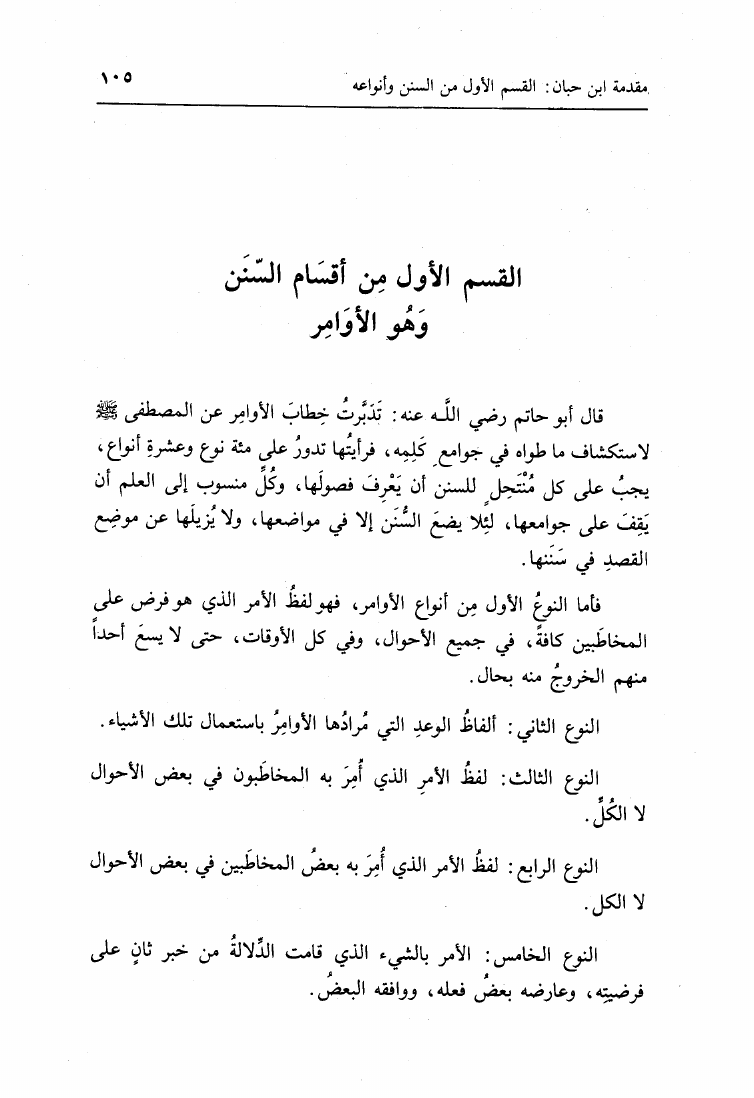 مقدمة ابن حبان: القسم الأول من السنن وأنواعه ١٠٥
القسم الأول مِن أقسَام السّنَن
وَهُو الأوَامِر
قال أبو حاتم رضي اللَّه عنه: تَدَبَّرتُ خِطابَ الأوامِر عن المصطفى ﷺ
لاستكشاف ما طواه في جوامع كَلِمِه، فرأيتُها تدورُ على مئة نوع وعشرةِ أنواع،
يجبُ على كل مُنْتَحِلٍ للسنن أن يَعْرِفَ فصولَها، وكُلِّ منسوب إلى العلم أن
يَقِفَ على جوامعها، لئِلا يضعَ السُّنَن إلا في مواضعها، ولا يُزيلَها عن موضِع
القصدِ في سَنَنها.
فأما النوعُ الأول مِن أنواع الأوامر، فهو لفظُ الأمر الذي هو فرض على
المخاطَبين كافةً، في جميع الأحوال، وفي كل الأوقات، حتى لا يسعَ أحداً
منهم الخروجُ منه بحال.
النوع الثاني: ألفاظُ الوعدِ التي مُرادُها الأوامِرُ باستعمال تلك الأشياء.
النوع الثالث: لفظُ الأمرِ الذي أُمِرَ به المخاطَبون في بعض الأحوال
لا الكُلِّ.
النوع الرابع: لفظُ الأمر الذي أُمِرَ به بعضُ المخاطَبين في بعض الأحوال
لا الكل.
النوع الخامس: الأمر بالشيء الذي قامت الدِّلالةُ من خبر ثانٍ على
فرضيتِه، وعارضه بعضُ فعله، ووافقه البعضُ.